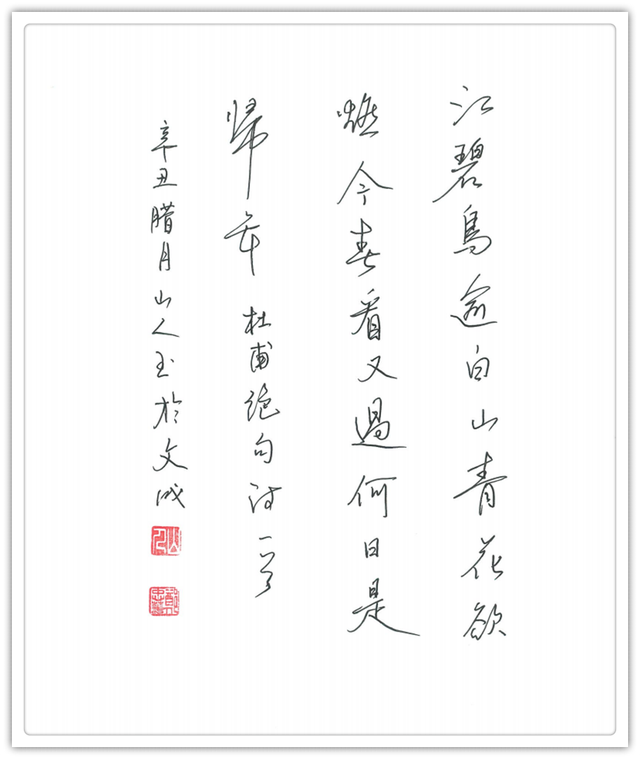 江碧鳥逾白山青花欲
燃今春看又過何日是
歸年 杜甫絕句詩一首
辛丑腊月山人書於文成
山人